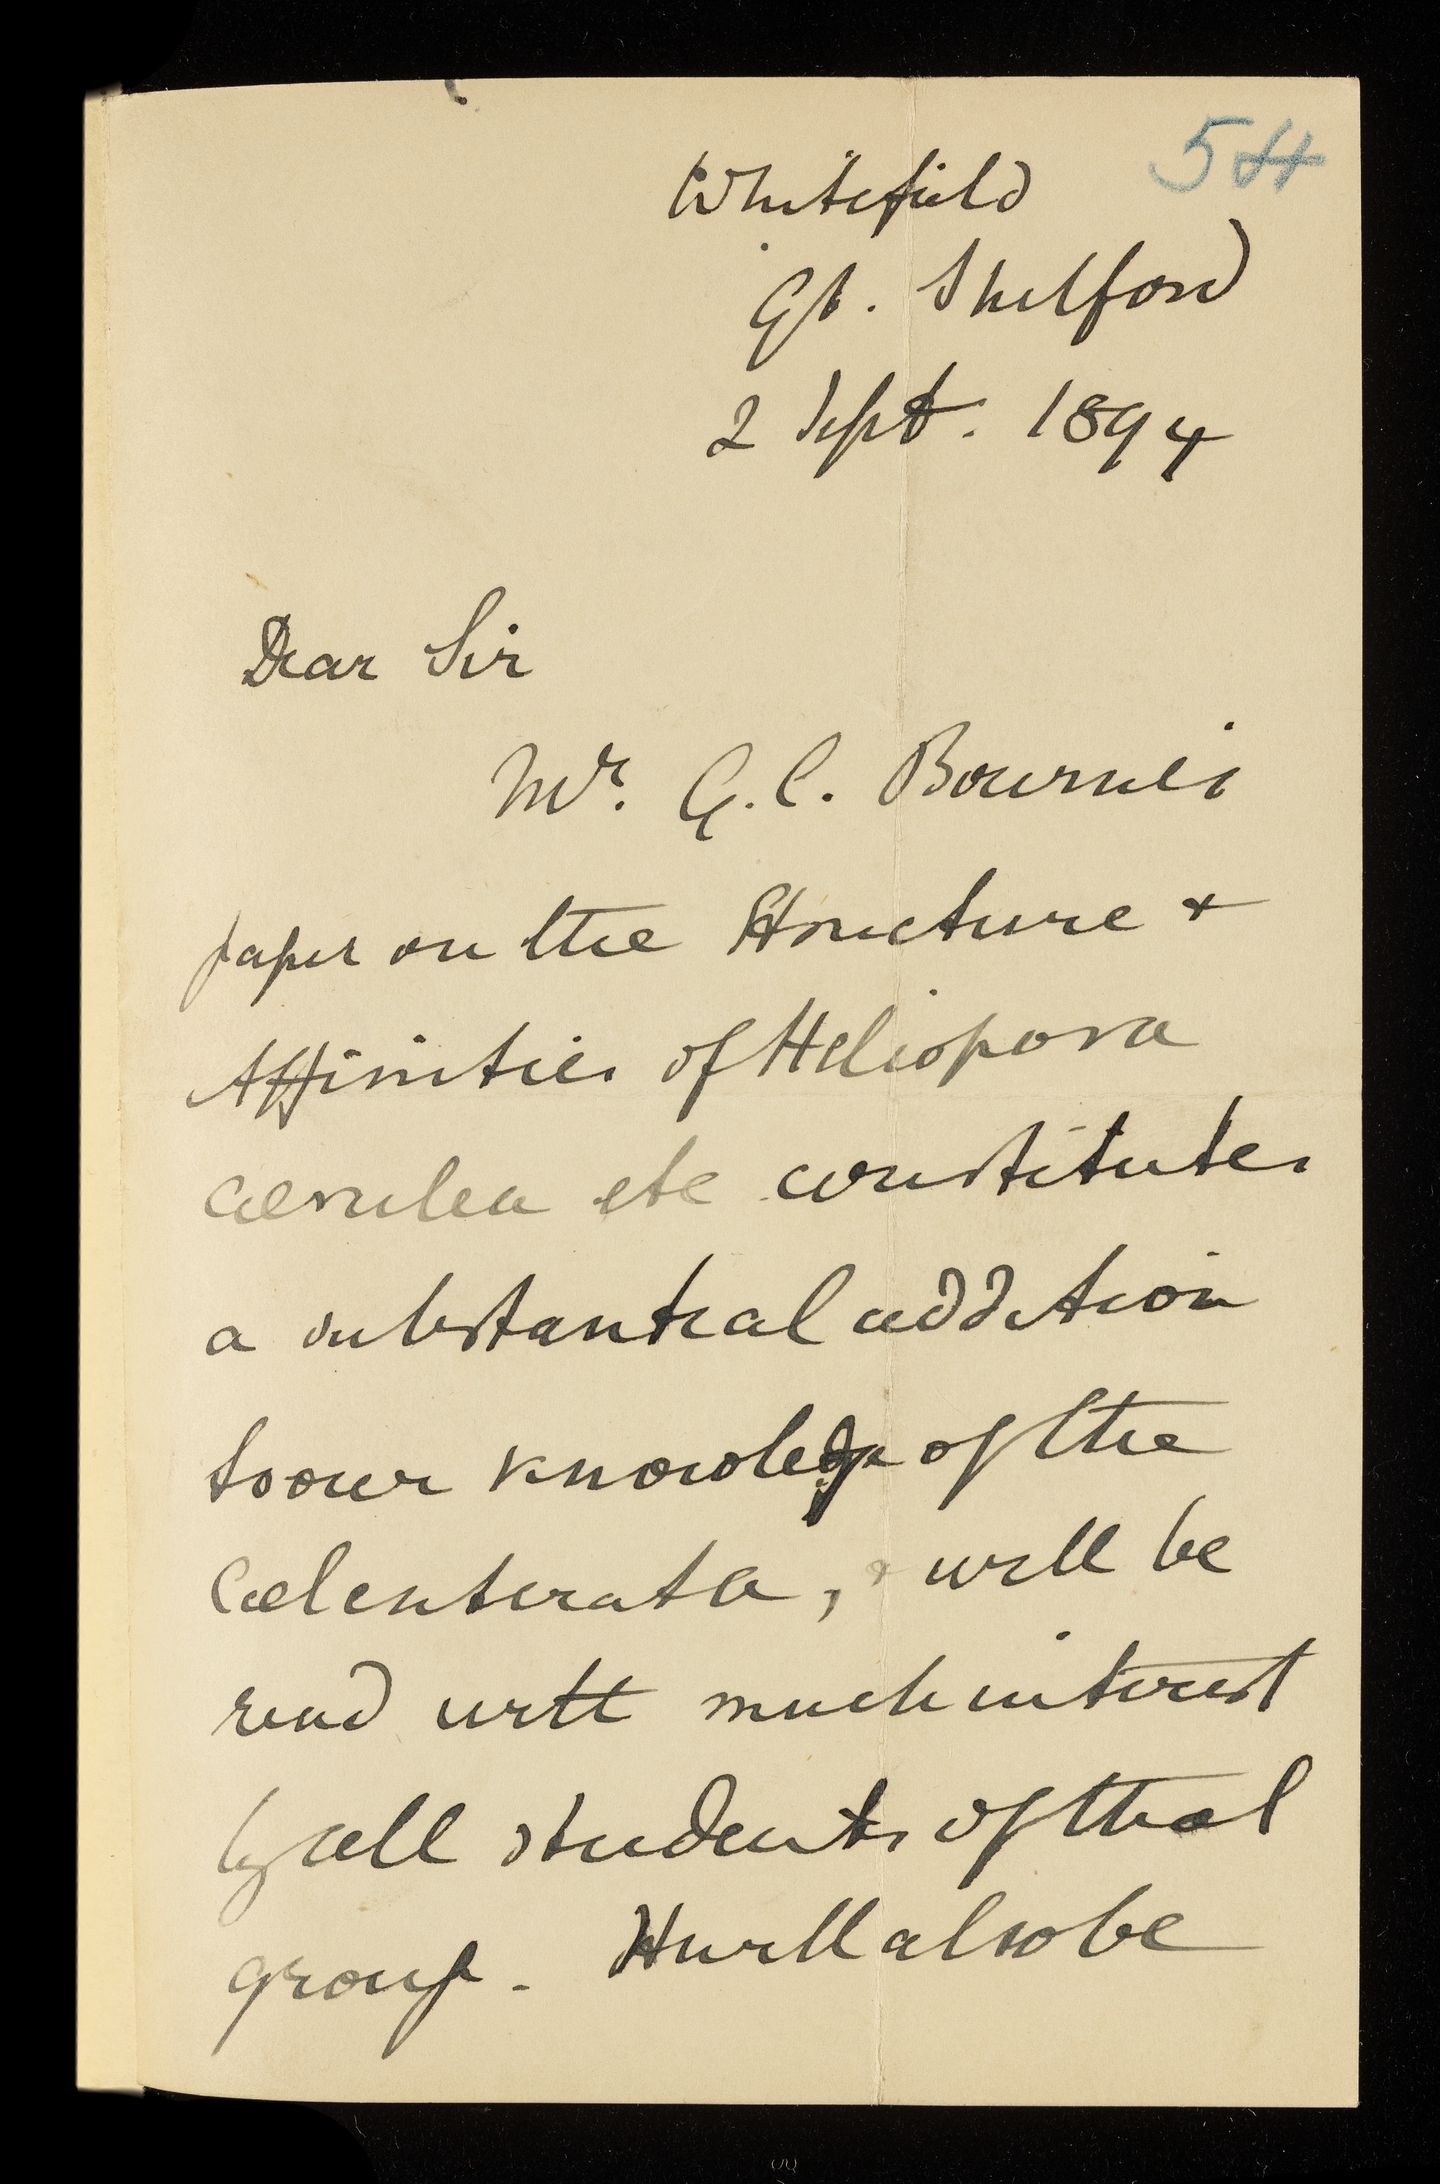 54
Whitefield
Gt. Shelford
2 Sept. 1894
Dear Sir
Mr. G. C. Bourne's
paper on the Structure &
Affinities of Heliopora
cœrulea etc constitutes
a substantial addition
to our knowledge of the
Cœlenterata, & will be
read with much interest
by all students of that
group. It will also be